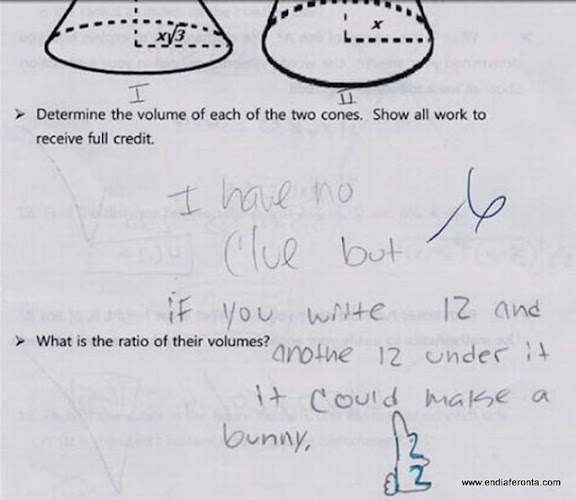 x√3
x
I
II
➤ Determine the volume of each of the two cones. Show all work to
receive full credit.
I have no
Clue but
if you write 12 and
➤ What is the ratio of their volumes?
anothe 12 under it
it could make a
bunny.
12
12
www.endiaferonta.com